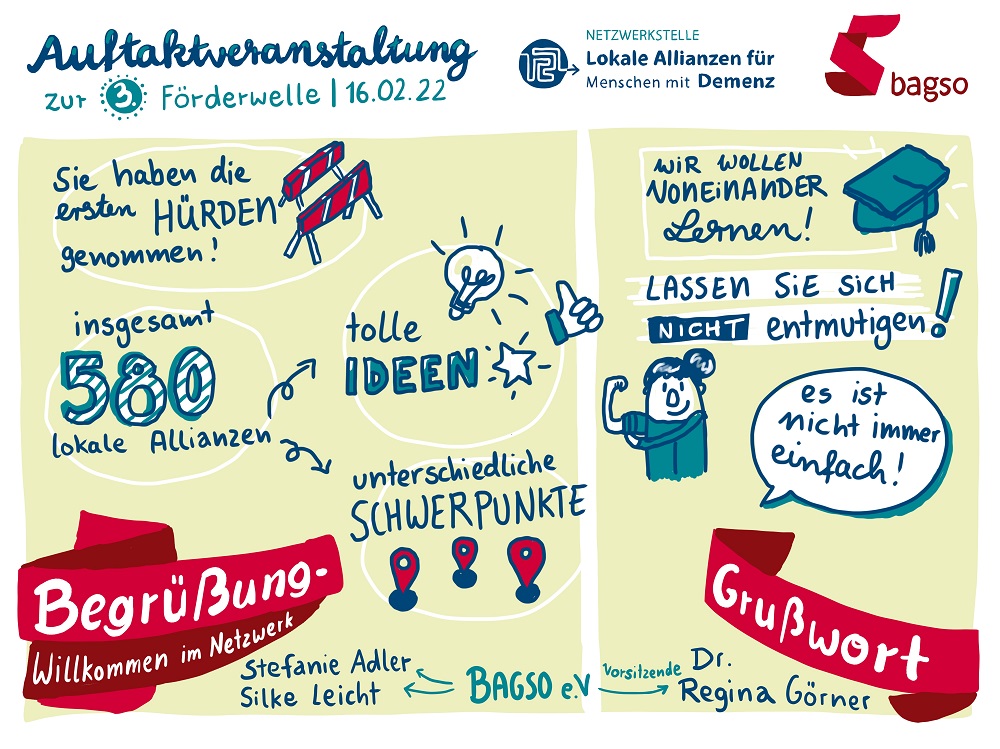 Auftaktveranstaltung
zur 3. Förderwelle | 16.02.22
NETZWERKSTELLE
Lokale Allianzen für
Menschen mit Demenz
bagso
Sie haben die
ersten HÜRDEN
genommen!
insgesamt
580
lokale Allianzen
tolle
IDEEN
unterschiedliche
SCHWERPUNKTE
Begrüßung-
Willkommen im Netzwerk
Stefanie Adler
Silke Leicht
BAGSO e.V
WIR WOLLEN
VONEINANDER
Lernen!
LASSEN SIE SICH
NICHT entmutigen!
es ist
nicht immer
einfach!
Grußwort
Vorsitzende
Dr.
Regina Görner